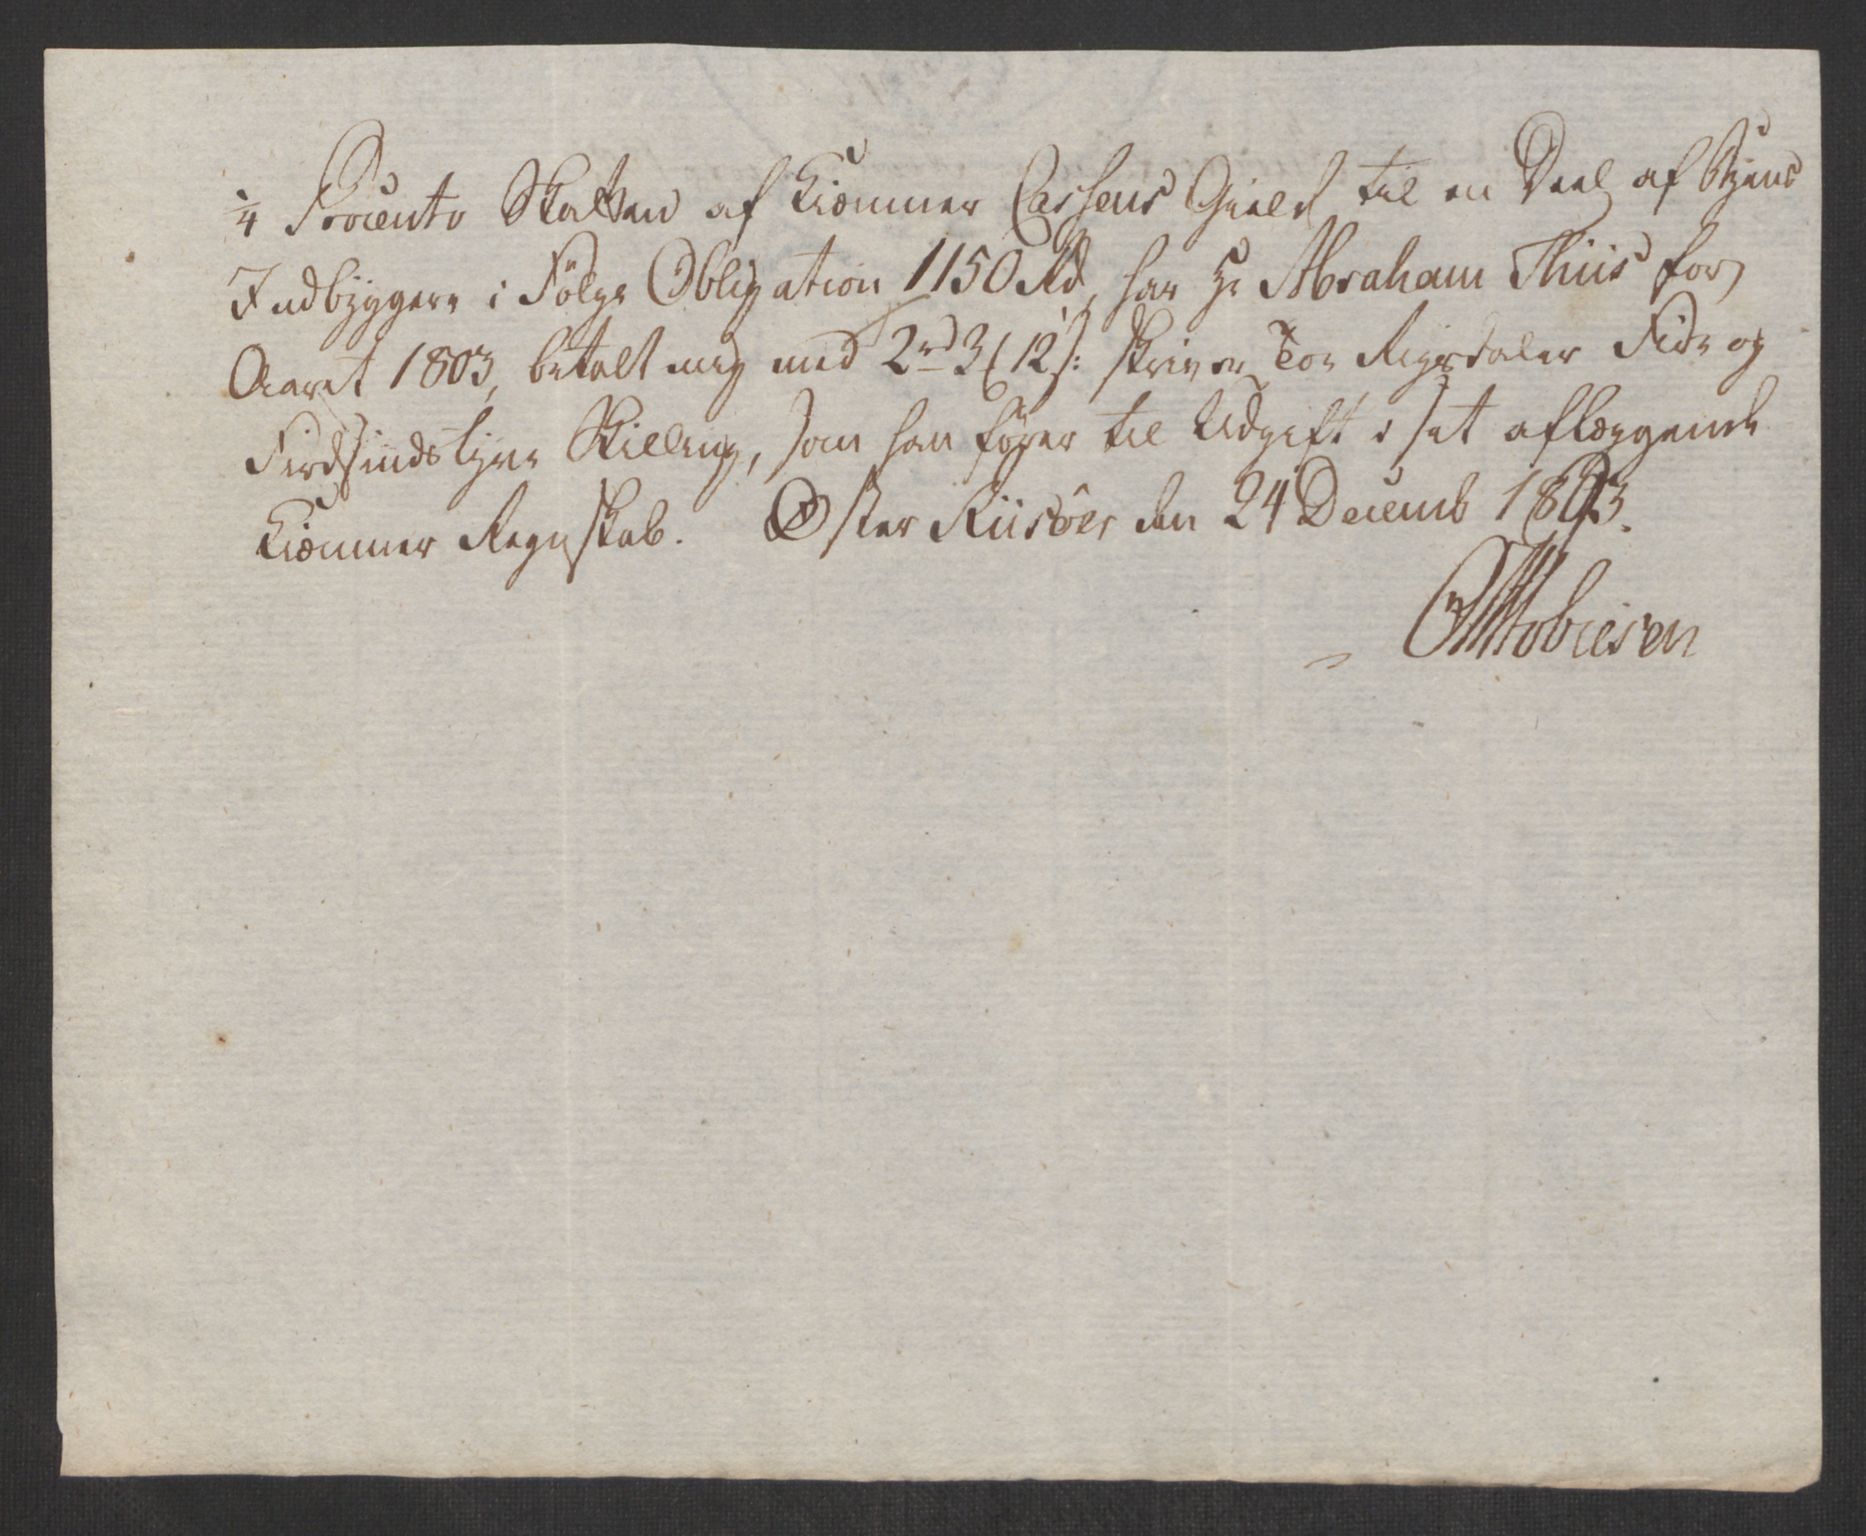 ¼ Procento Skatten af Kiæmner Cassens Gield til en Deel af Byens
Indbyggere i Følge Obligation 1150 Rd, har Hr Abraham Thiis for
Aaret 1803, betalt mig med 2rd 3 ( 12 s: skriver Toe Rigsdaler Fire og
Firdsindstyve Skilling, som han fører til Udgift i sit aflæggende
Kiæmner Regnskab. Øster Riisøer den 24 Decemb 1803.
Tobiesen